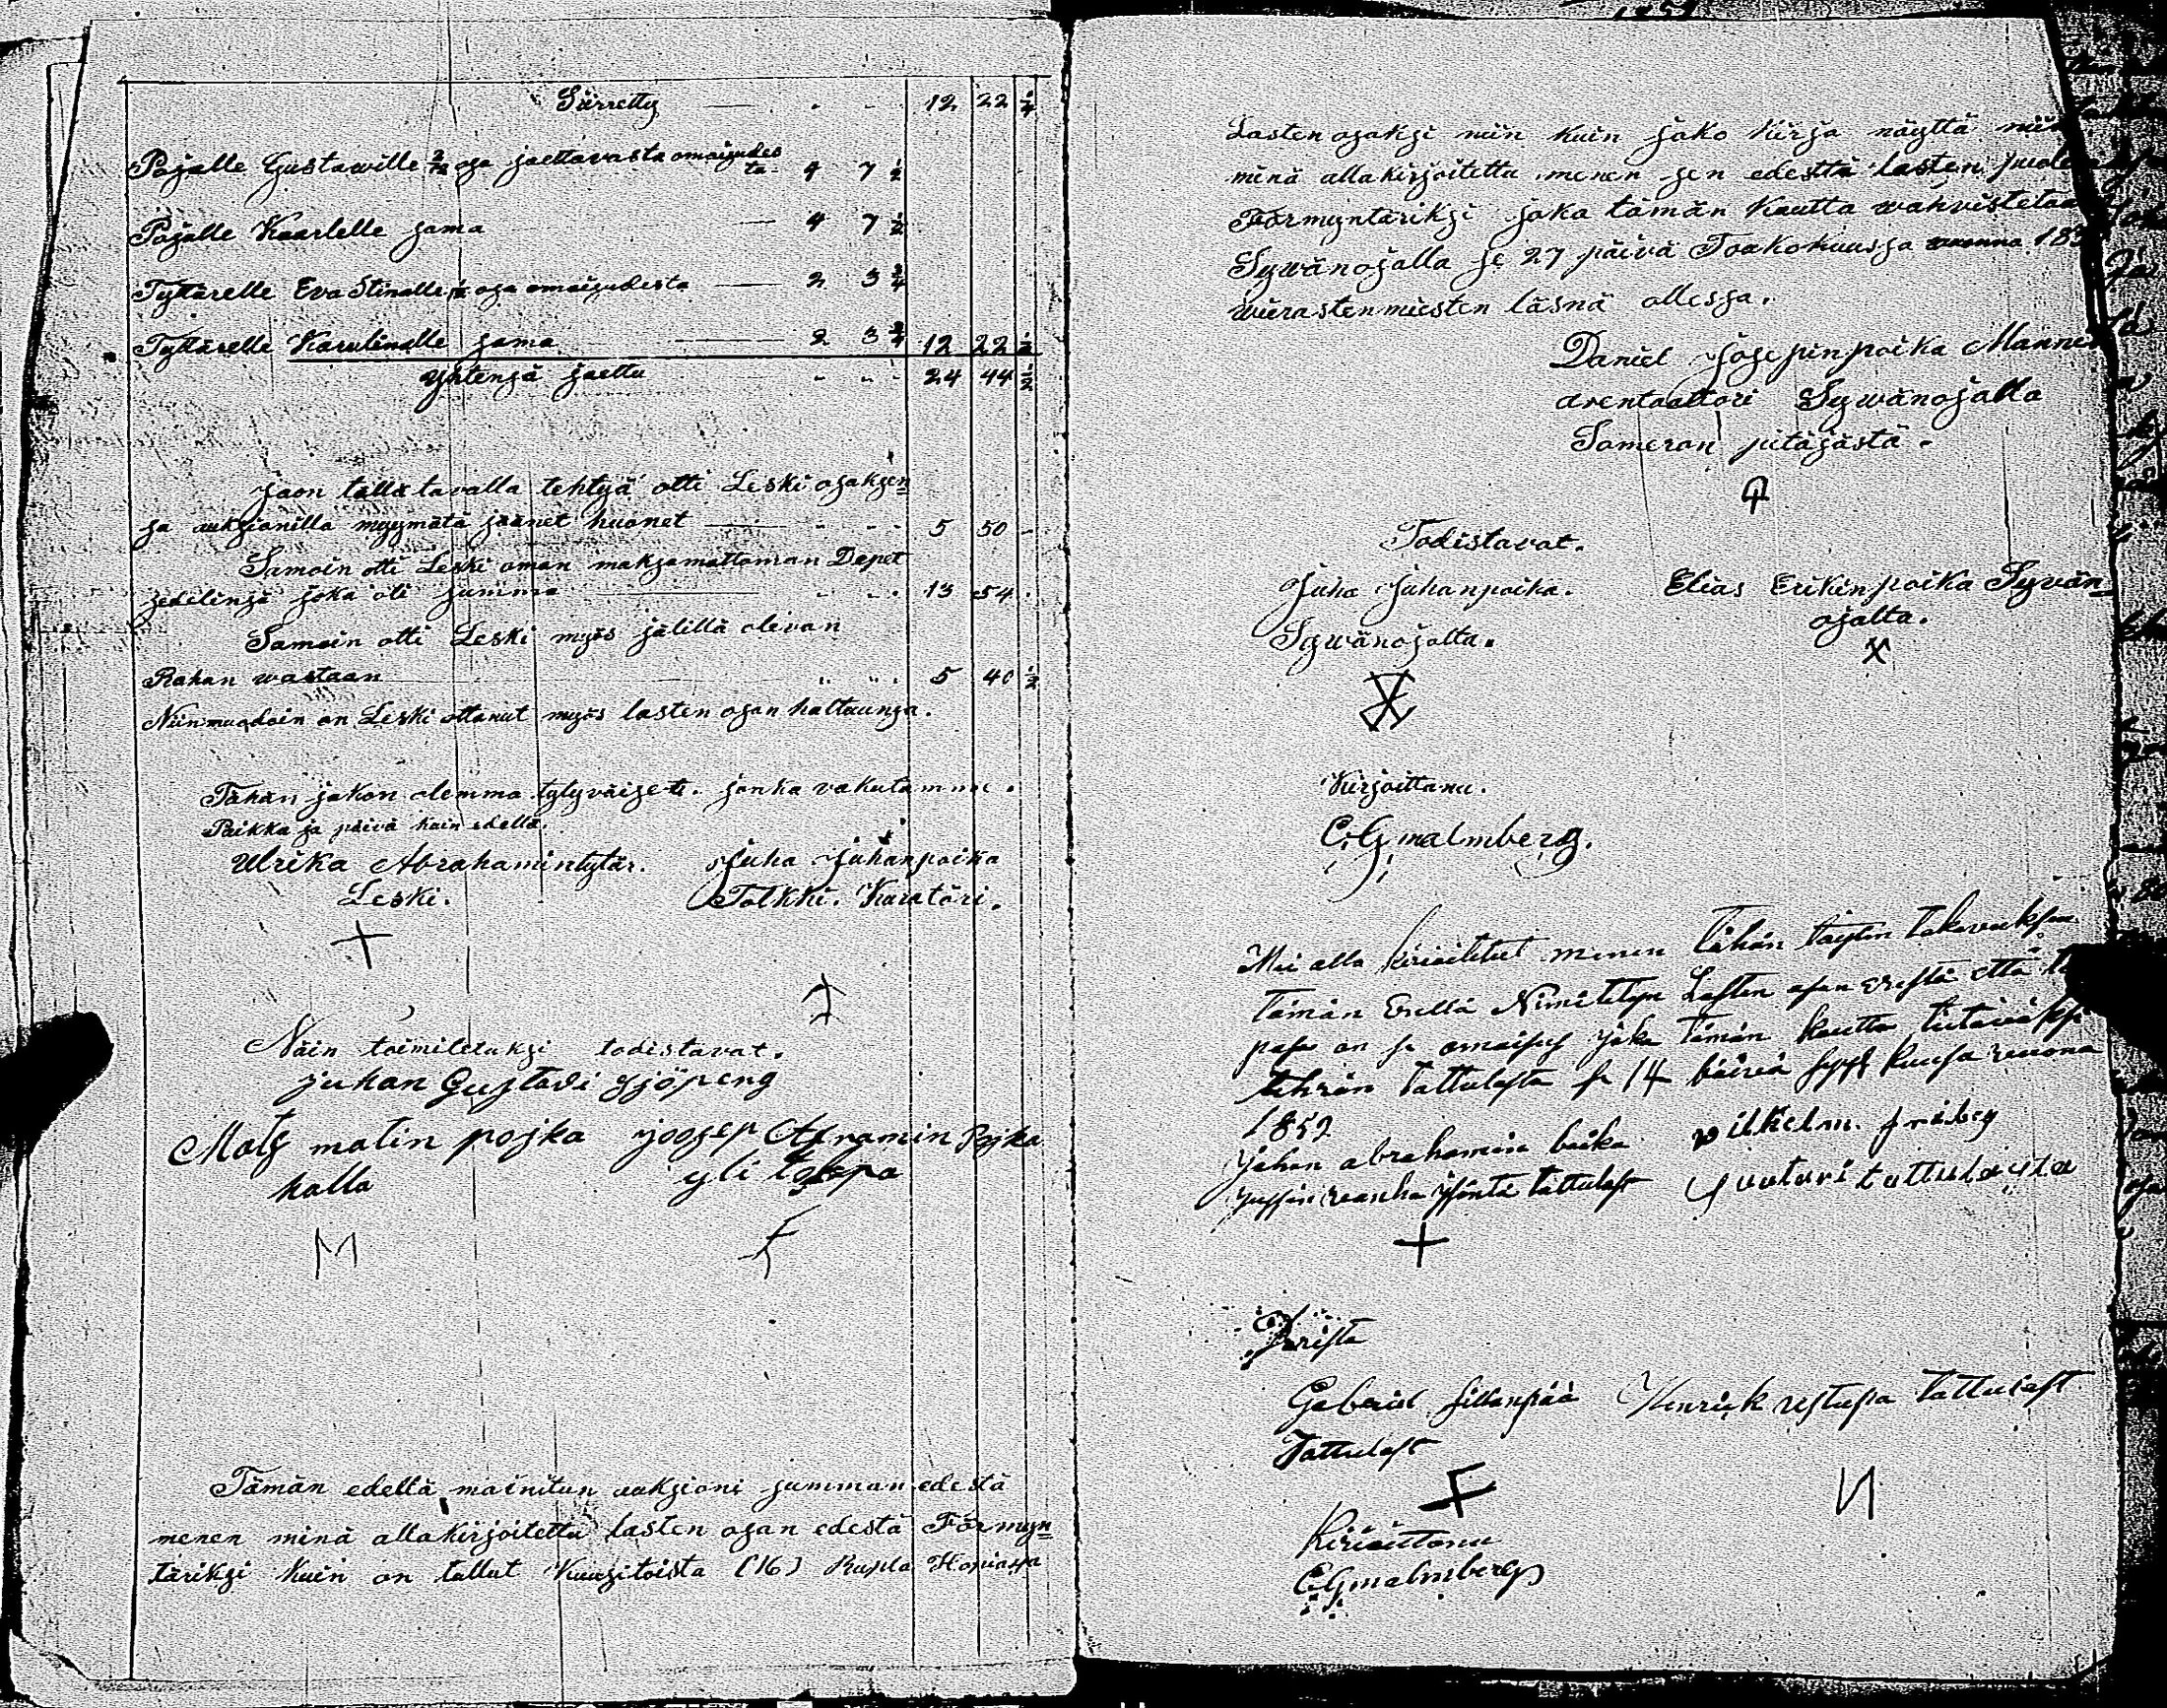 Siirretty — . - 12 22 ½
Pojalle Gustawille 2/12 osa jaettavasta omaisudes
ta - 4 7 ½
Pojalle Kaarlelle sama — 4 7 ½
Tyttärelle Eva Stinalle osa omaisudesta — 2 3 ¾
Tyttärelle Karulinalle sama — 2 3 ¾ 12 22 ½
Yhtensä jaettu - - - 24 44 ½
Jaon tällä tavalla tehtyä otti Leski osaksen
sa auksionilla myymätä jäänet huonet — - - - 5 50 -
Samoin otti Leski oman maksamattoman Depet
zedelinsä joka oli summa — - - . 13 54 .
Samoin otti Leski myös jälillä olevan
Rahan wastaan — 5 40 ½
Niinmuodoin on Leski ottanut myös lasten osan haltuunsa.
Tähän jakon olemma tytyväiset. jonka vakutamme.
Paikka ja päivä kuin edellä.
Ulrika Abrahamintytär. Juha Juhanpoika
Leski. Tolkki. Kuratöri.
Näin toimitetuksi todistavat.
juhan Gustavi sjöpeng
Mats matin pojka joosep Abramin Pojka
kalla yli talopa
M
Tämän edellä mainitun auksioni summan edestä
menen minä allakirjoitettu lasten osan edestä Förmyn
täriksi kuin on tullut Kuusitoista (16) Rupla Hopiassa
Lasten osaksi niin kuin jako kirja näyttä niin
minä allakirjoitettu menen sen edestä lasten
Förmyntäriksi joka tämän kautta wahvistetaan
Sywänojalla se 27 päivä Toukokuussa vuonna
wierastenmiesten läsnä ollessa.
Daniel Josepinpoika
arentaattori Sywänojalla
Someron pitäjästä.
Todistavat.
Juha Juhanpoika. Elias Erikinpoika Syvän
Sywänojalta. ojalta.
X
Kirjoittanu.
C.G. malmberg.
Mii alla kirioitetut menen tähän täyten takavuksen
tämän Evellä Nimitetyn Lasten osan evestä että
on se omaisus joka tämän kautta
tehrän tattulasta se 14 päivä kuusa vuona
1852
Johan abrahamin boika vilhelm friberg
tattulast tattulasta
Gabriel Sillanpää Henrik tattulast
Tattulast
Kirioittanu
CGmalmberg